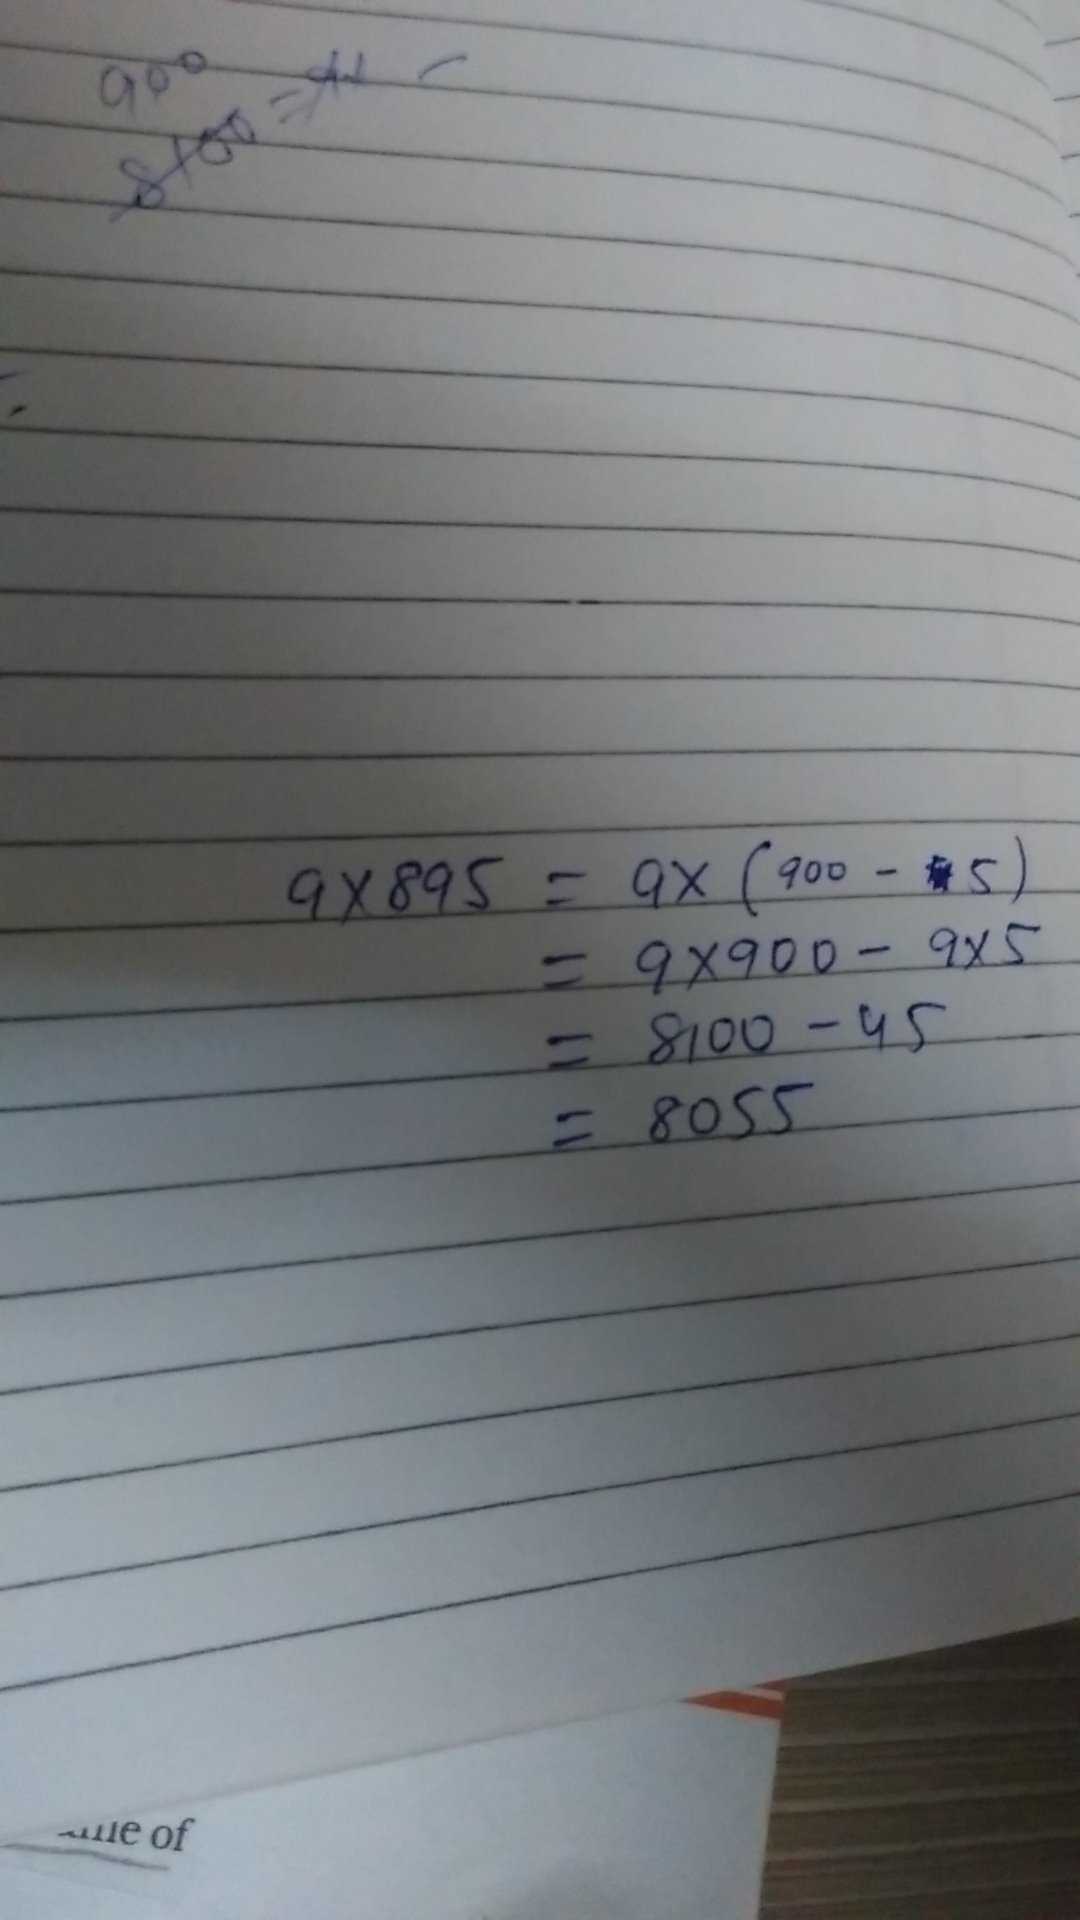 900
8100 =
9x895 = 9x (900 - 5)
= 9x900 - 9x5
= 8100 - 45
= 8055
of